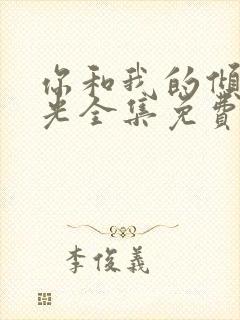 你和我的傾
光全集免費
李俊義